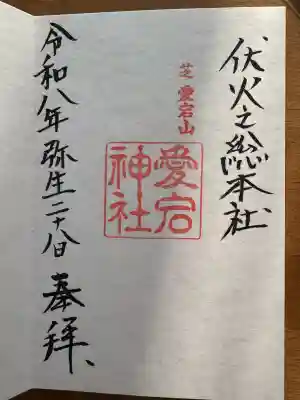 伏火之総本社
芝 愛宕山
愛宕
神社
令和八年弥生二十八日 奉拝、